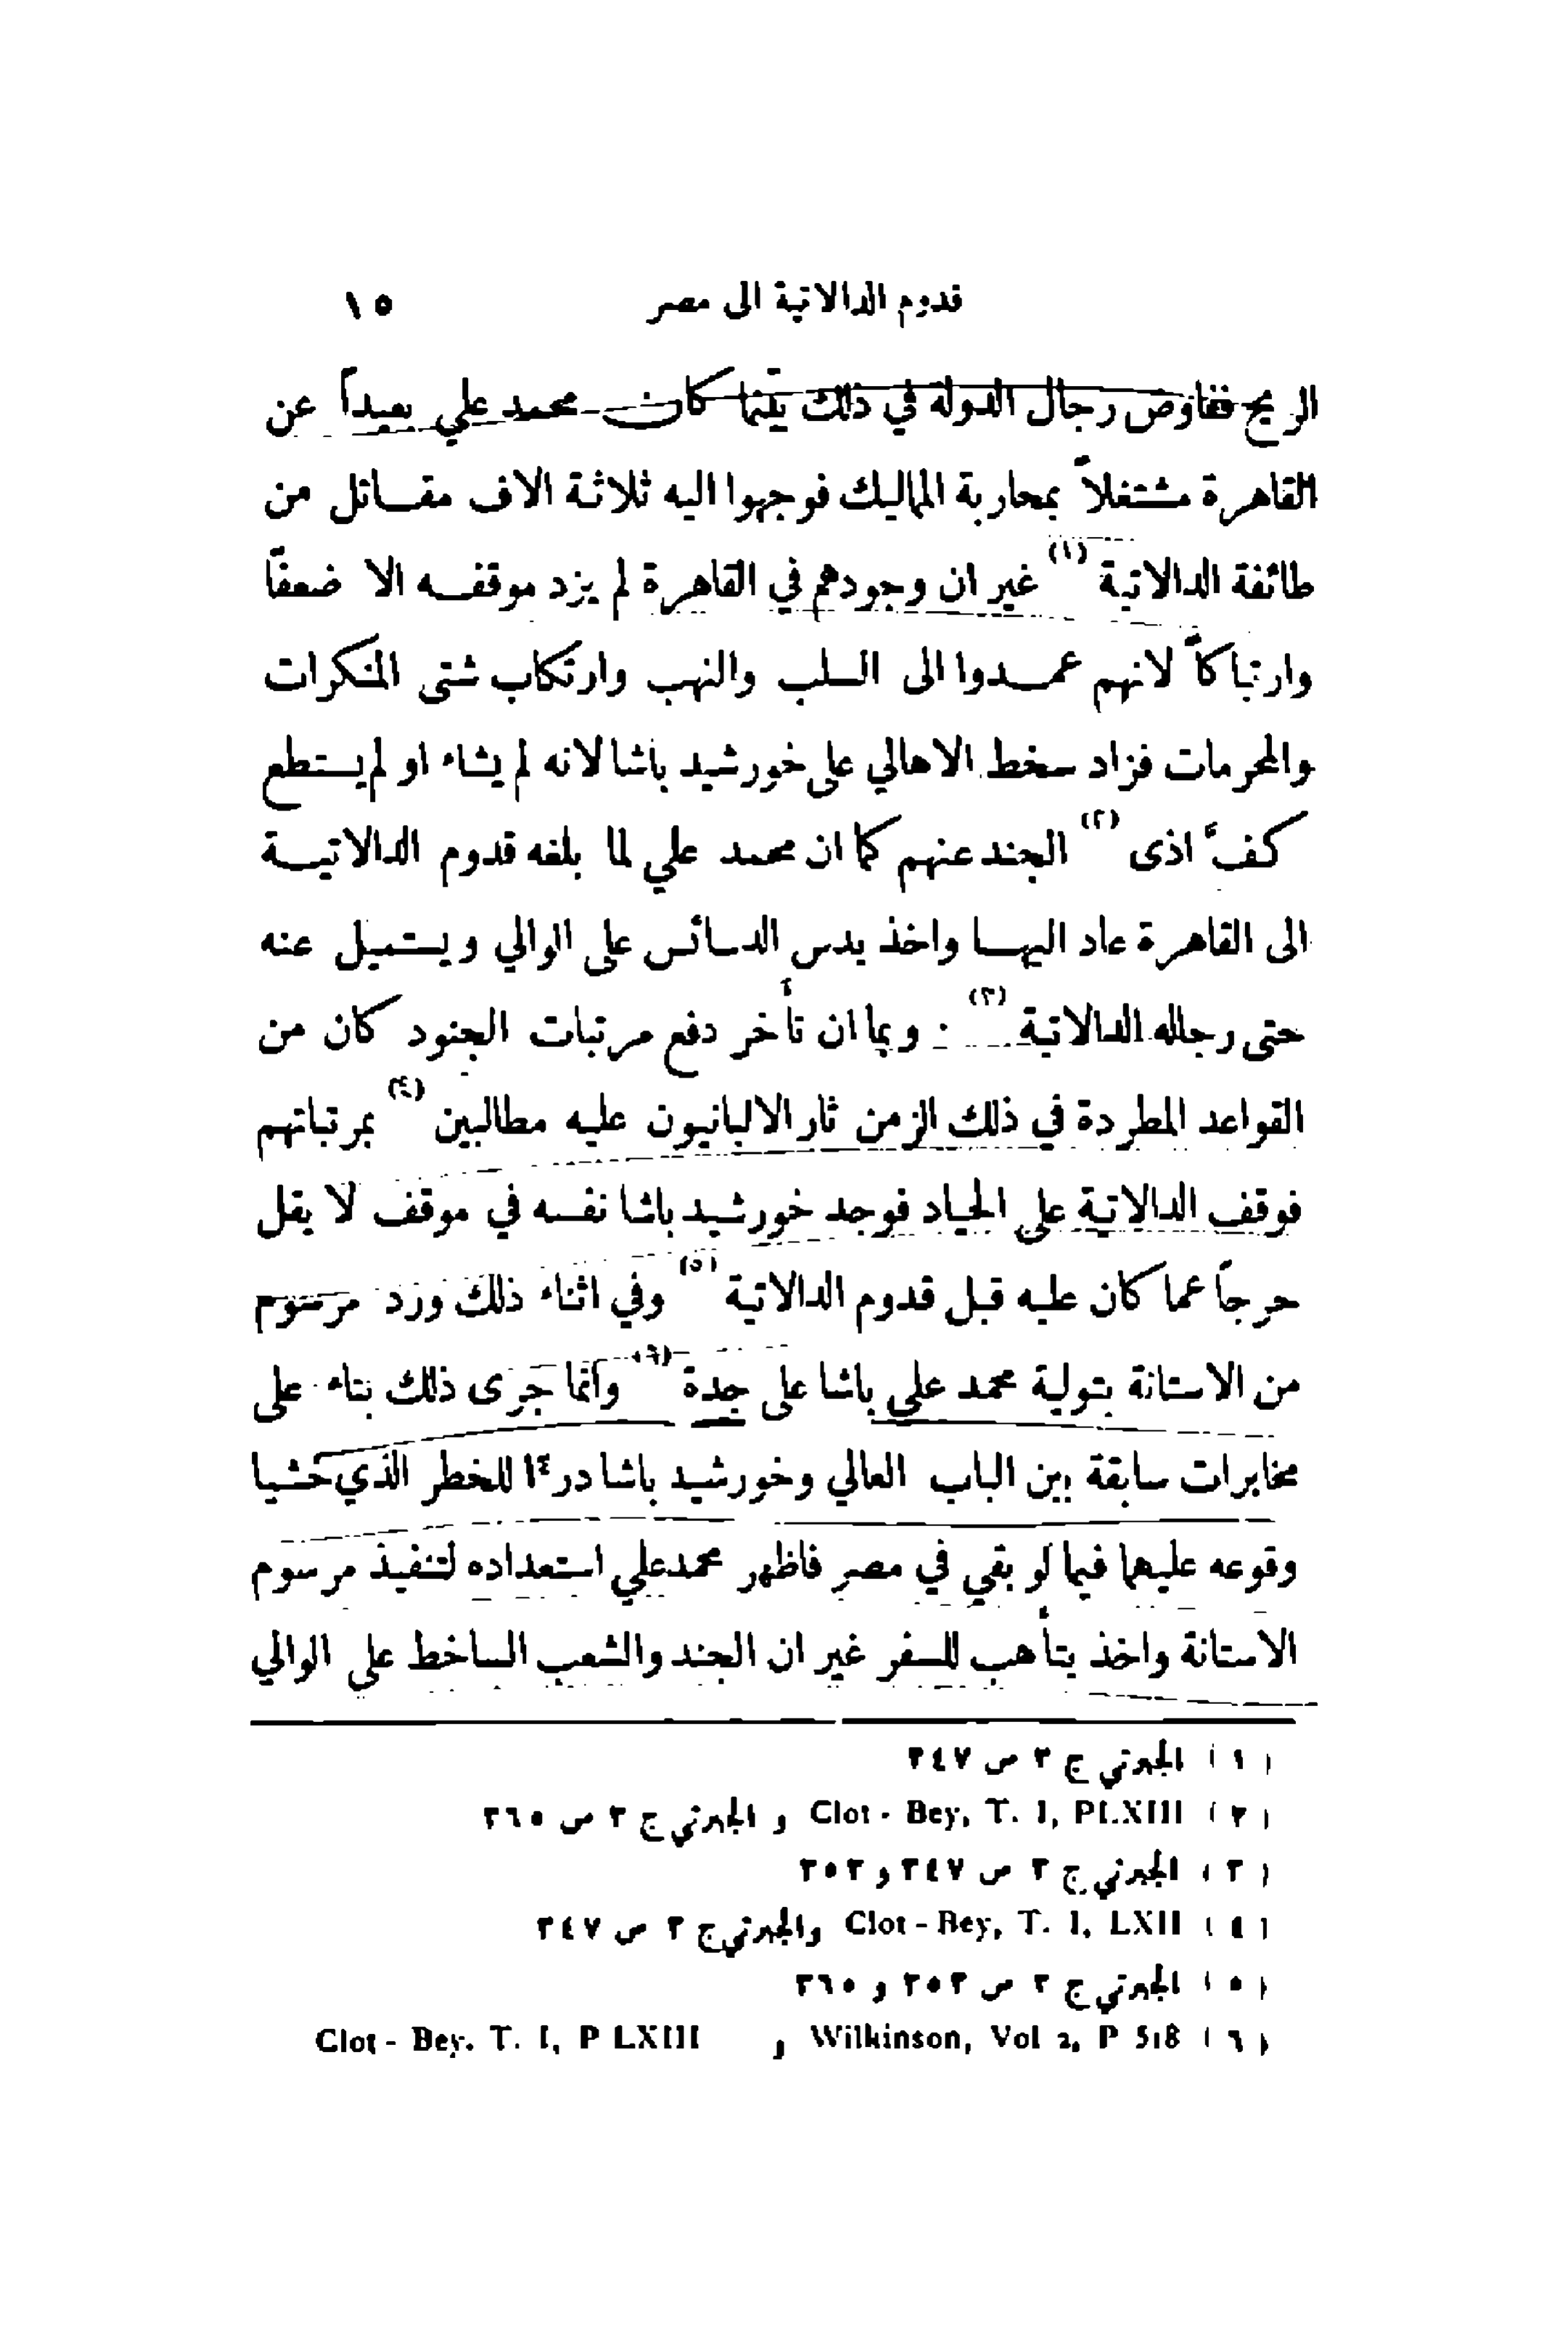 قدوم الدالاتية الى مصر ١٥
الريح ففاوض رجال الدولة في ذلك بينما كان محمد علي بعيداً عن
القاهرة مشتغلاً بمحاربة المماليك فوجهوا اليه ثلاثة الاف مقاتل من
طائفة الدالاتية (١) غير ان وجودهم في القاهرة لم يزد موقفه الا ضعفاً
وارتباكاً لانهم عمدوا الى السلب والنهب وارتكاب شتى المنكرات
والمحرمات فزاد سخط الاهالي على خورشيد باشا لانه لم يشاء او لم يستطع
كفّ اذى (٢) الجند عنهم كما ان محمد علي لما بلغه قدوم الدالاتية
الى القاهرة عاد اليها واخذ يدس الدسائس على الوالي ويستميل عنه
حتى رجاله الدالاتية (٣) . وبما ان تأخر دفع مرتبات الجنود كان من
القواعد المطردة في ذلك الزمن ثار الالبانيون عليه مطالبين (٤) بمرتباتهم
فوقف الدالاتية على الحياد فوجد خورشيد باشا نفسه في موقف لا يقل
حرجاً عما كان عليه قبل قدوم الدالاتية (٥) وفي اثناء ذلك ورد مرسوم
من الاستانة بتولية محمد علي باشا على جدة (٦) وانما جرى ذلك بناء على
مخابرات سابقة بين الباب العالي وخورشيد باشا درءًا للخطر الذي خشيا
وقوعه عليهما فيما لو بقي في مصر فاظهر محمد علي استعداده لتنفيذ مرسوم
الاستانة واخذ يتأهب للسفر غير ان الجند والشعب الساخط على الوالي
(١) الجبرتي ج ٣ ص ٣٤٧
(٢) Clot - Bey, T. I, PLXIII و الجبرتي ج ٣ ص ٣٦٥
(٣) الجبرتي ج ٣ ص ٣٤٧ و ٣٥٣
(٤) Clot - Bey, T. I, LXII والجبرتي ج ٣ ص ٣٤٧
(٥) الجبرتي ج ٣ ص ٣٥٣ و ٣٦٥
(٦) Wilkinson, Vol 2, P 518 و Clot - Bey. T. I, P LXIII